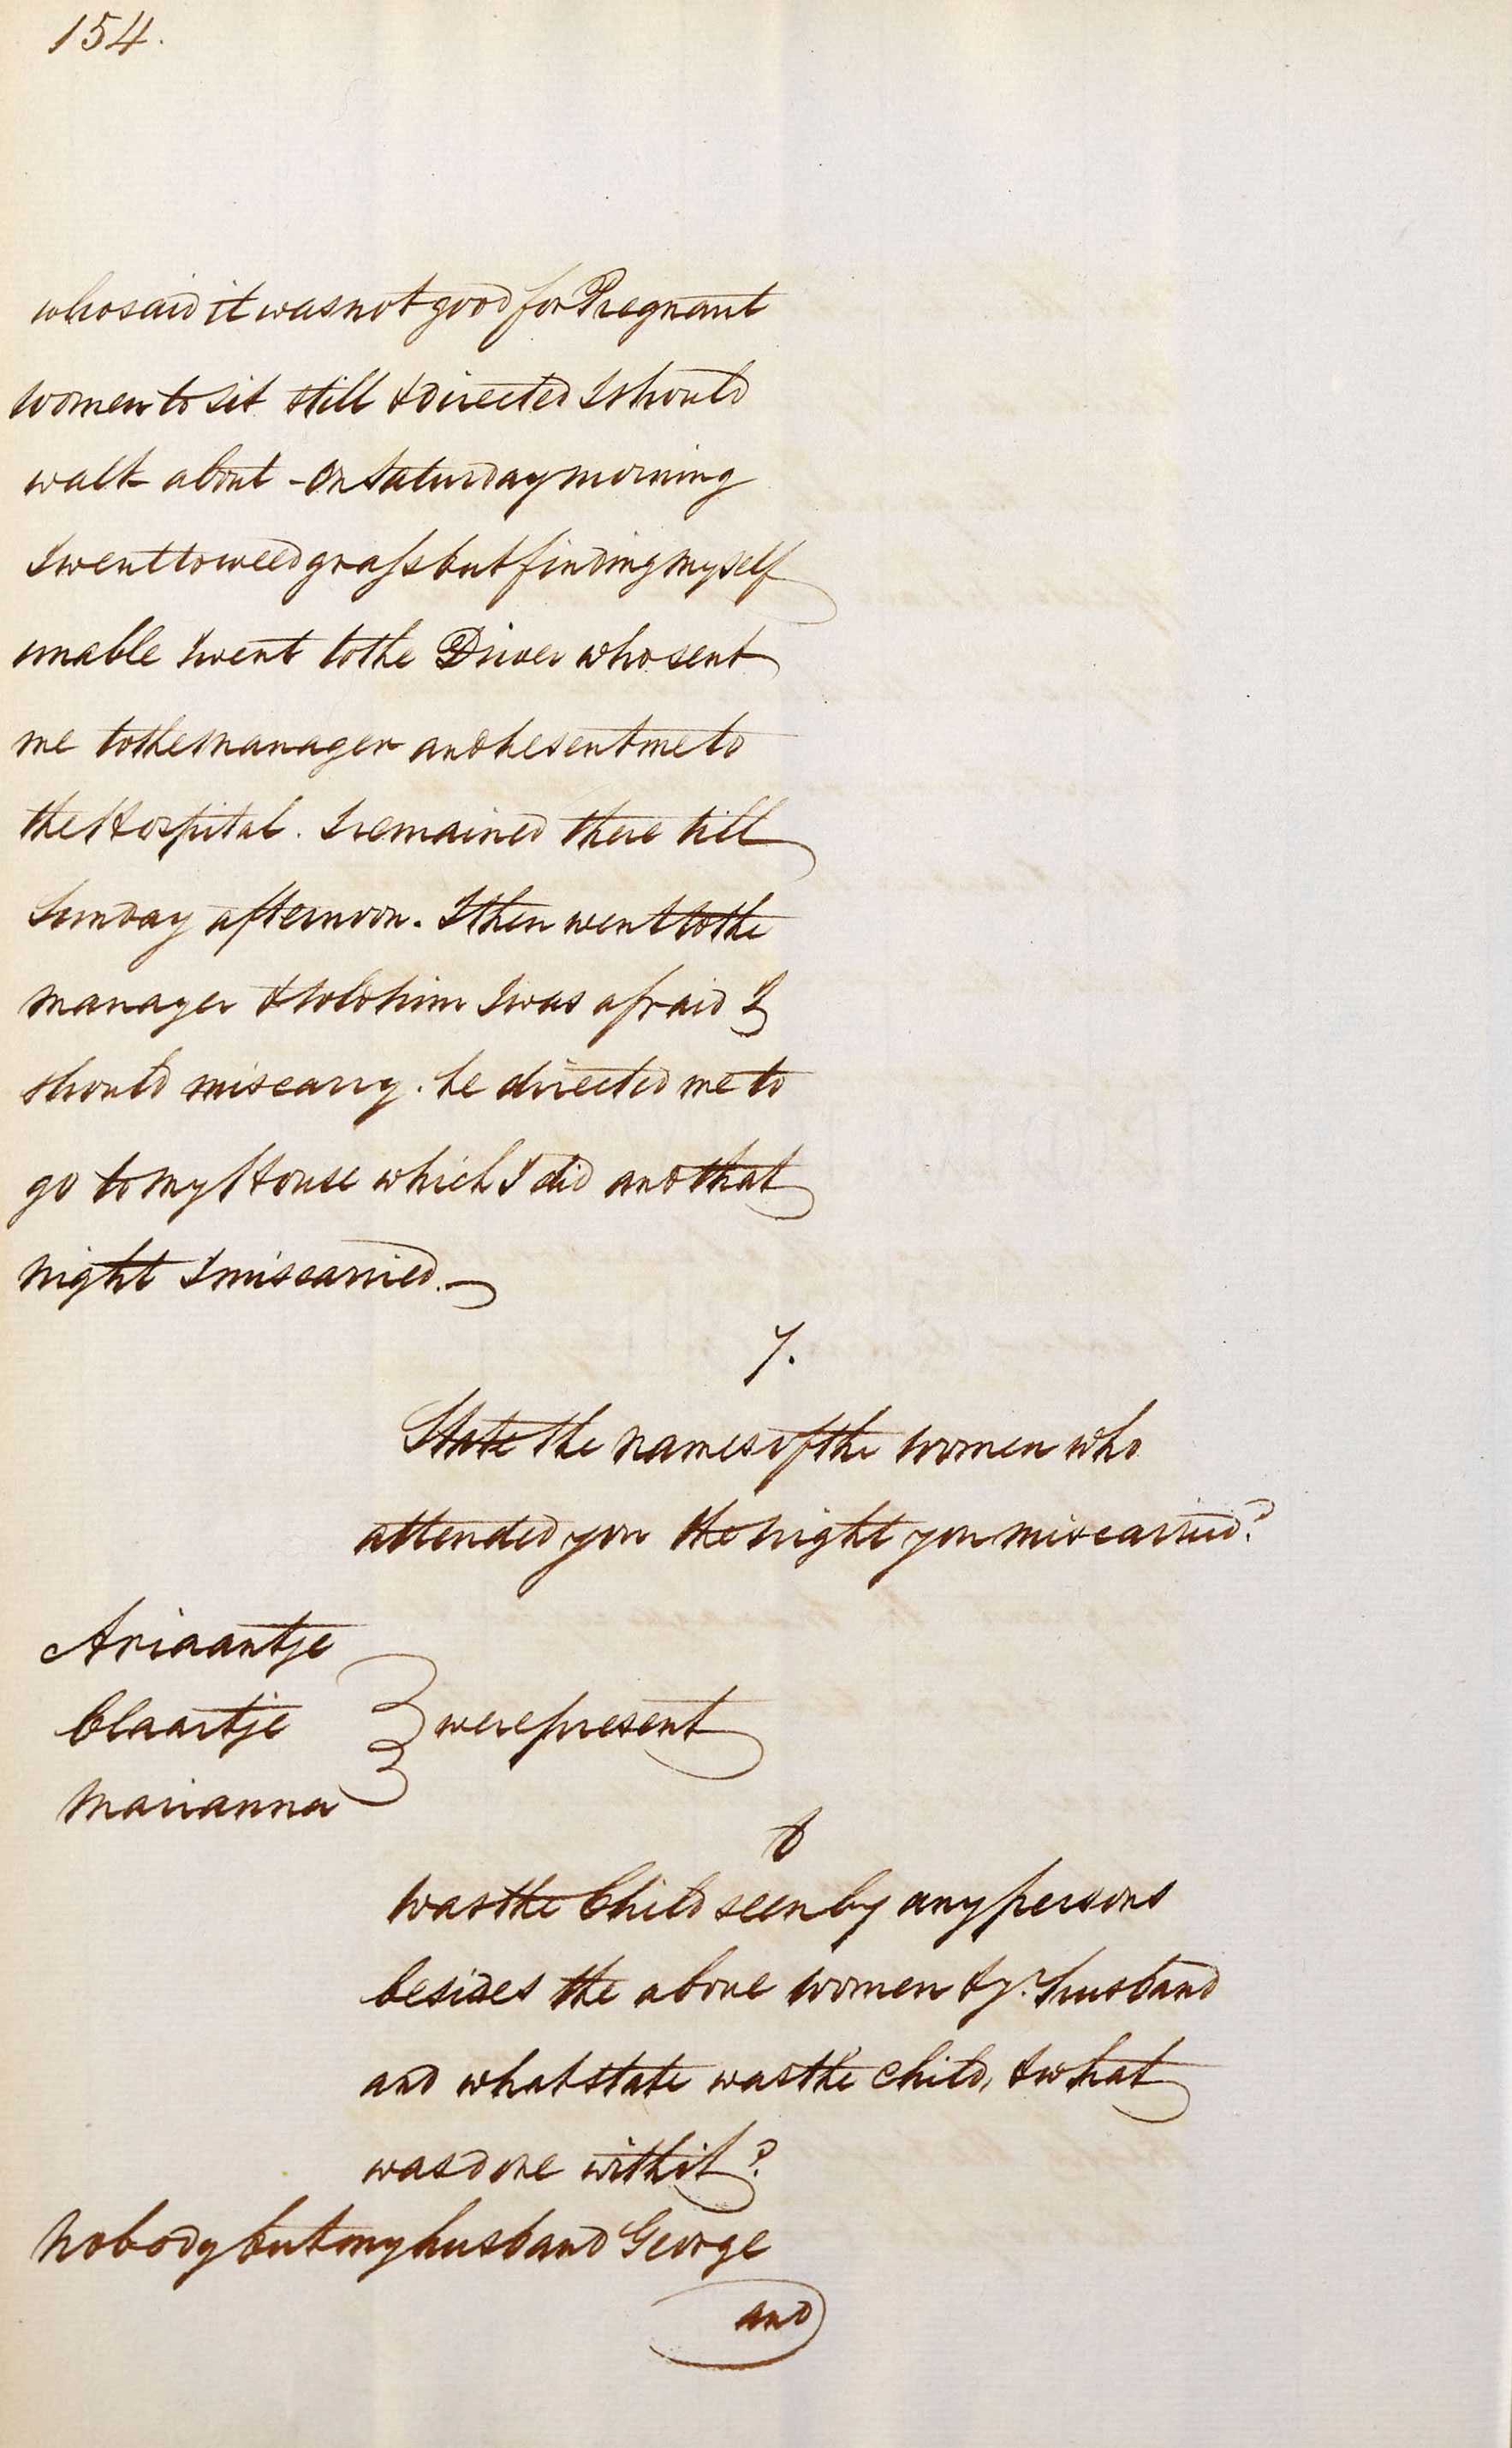 154.
who said it was not good for Pregnant
women to sit still & directed I should
walk about - On Saturday morning
I went to weed grass but finding myself
unable I went to the Driver who sent
me to the manager and he sent me to
the Hospital. I remained there till
Sunday afternoon. I then went to the
manager & told him I was afraid I
should miscarry. he directed me to
go to my House which I did and that
night I miscarried.—
7.
State the names of the women who
attended you the night you miscarried?
Ariaantje
Claartje } were present
Marianna
8
Was the Child seen by any persons
besides the above women & yr. husband
and what state was the child, & what
was done with it?
Nobody but my husband George
and